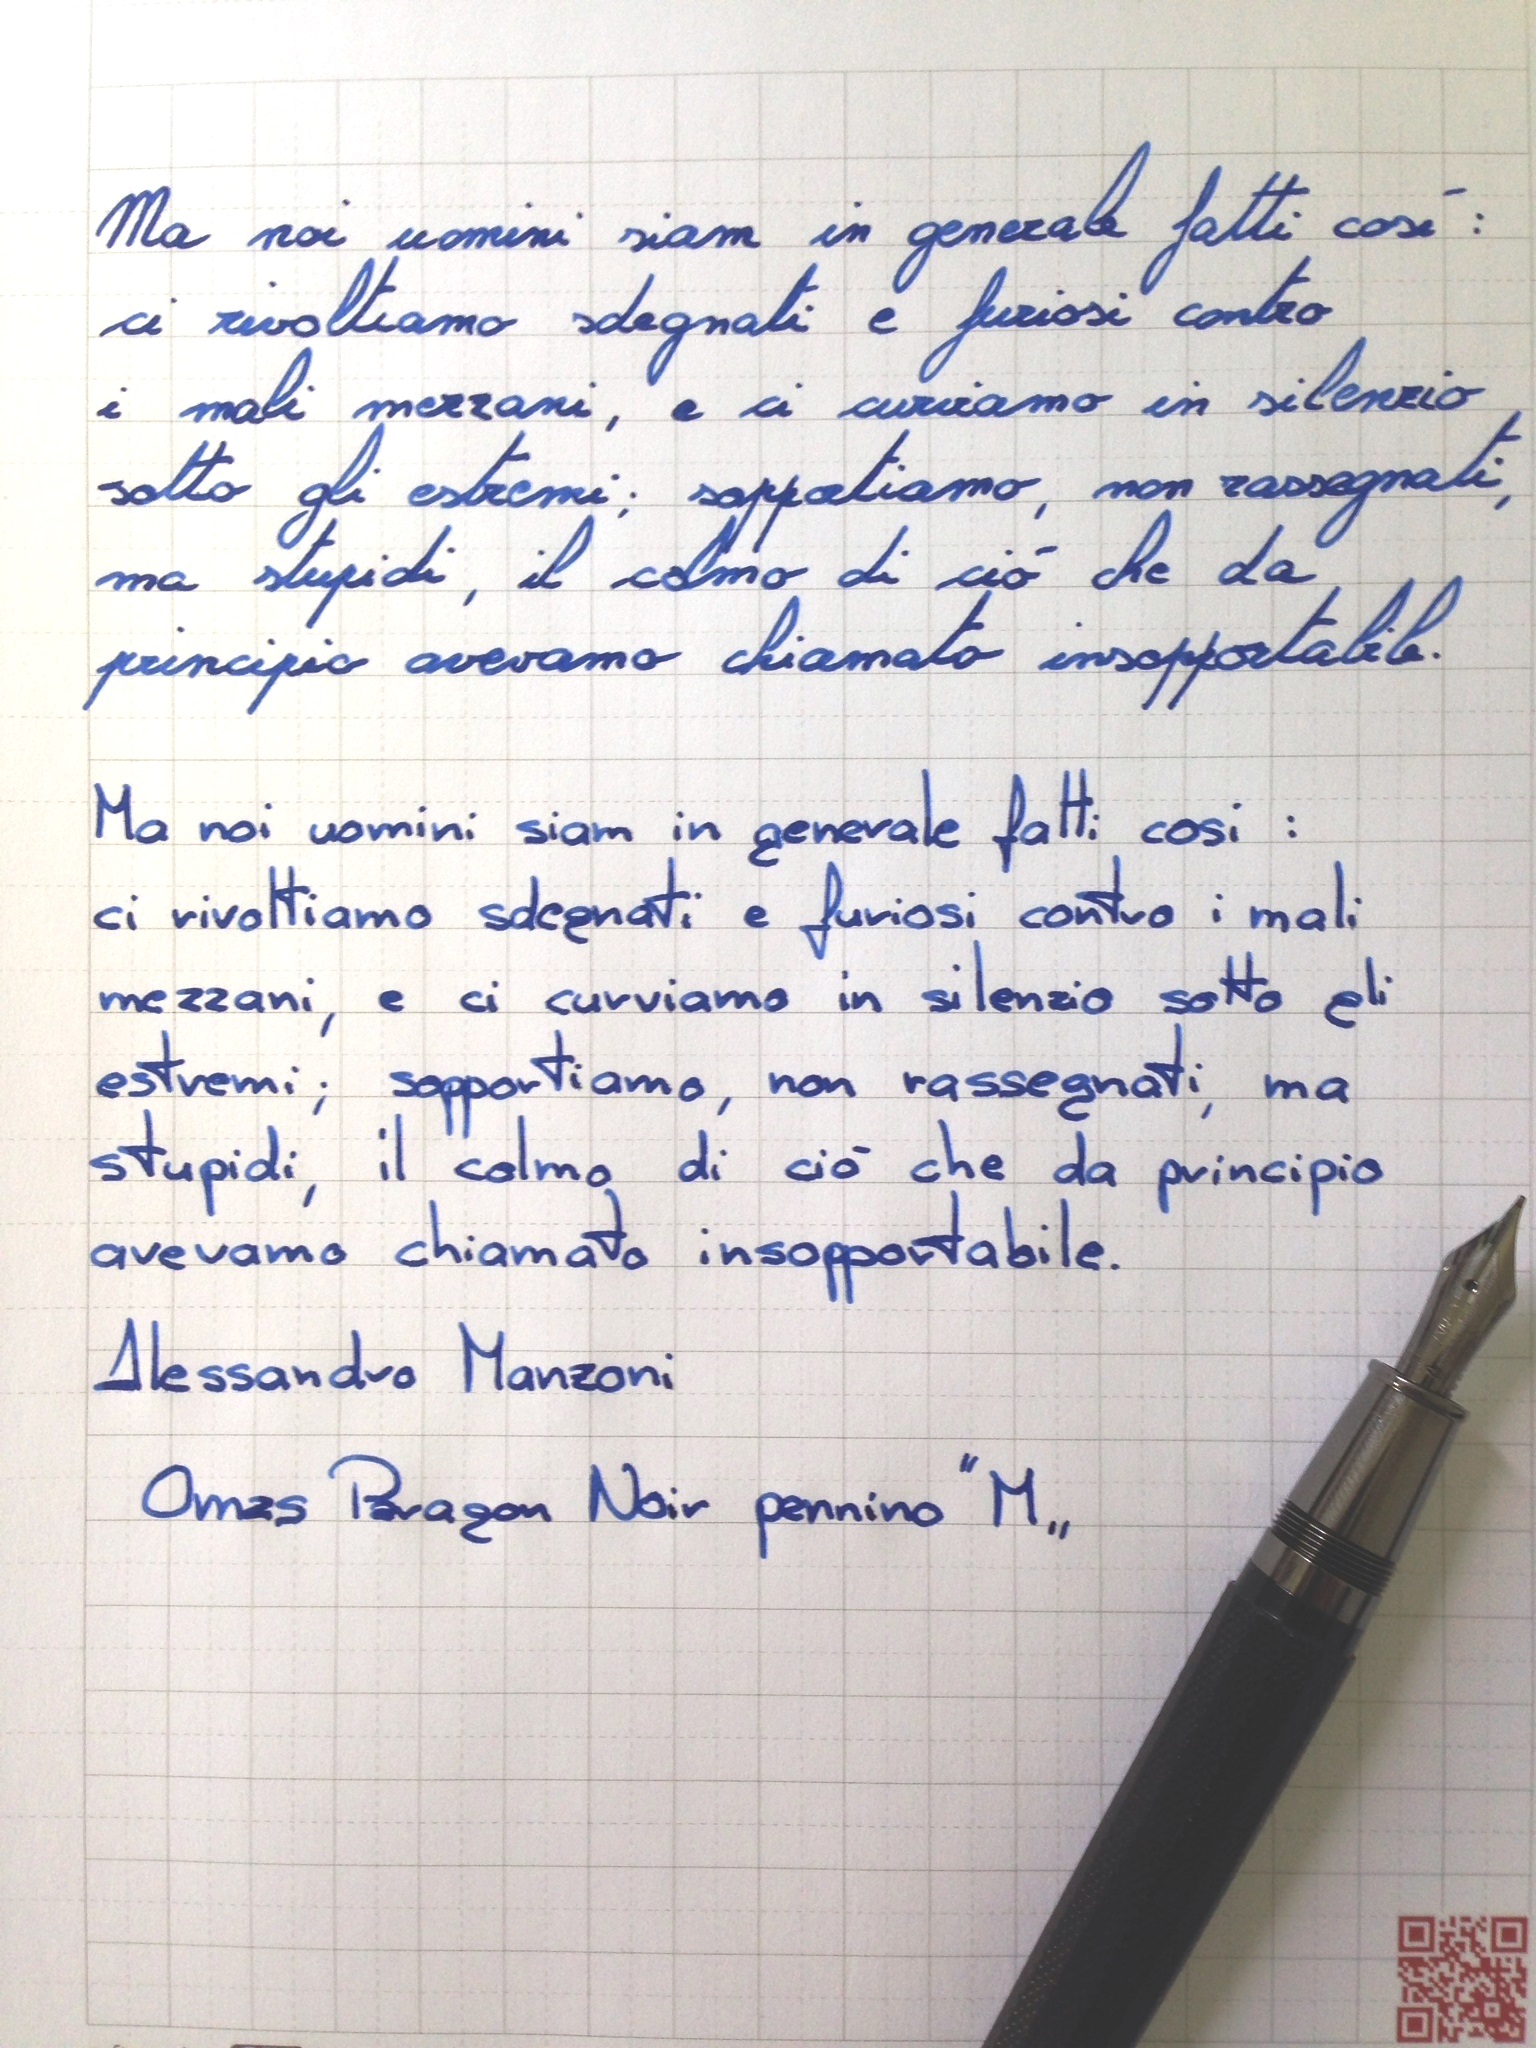 Ma noi uomini siam in generale fatti così:
ci rivoltiamo sdegnati e furiosi contro
i mali mezzani, e ci curviamo in silenzio
sotto gli estremi; sopportiamo, non rassegnati,
ma stupidi, il colmo di ciò che da
principio avevamo chiamato insopportabile.
Ma noi uomini siam in generale fatti cosi :
ci rivoltiamo sdegnati e furiosi contro i mali
mezzani, e ci curviamo in silenzio sotto gli
estremi; sopportiamo, non rassegnati, ma
stupidi, il colmo di ciò che da principio
avevamo chiamato insopportabile.
Alessandro Manzoni
Omas Paragon Noir pennino "M„